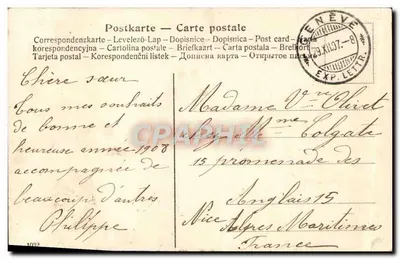 Postkarte — Carte postale
Correspondenzkarte - Levelező-Lap - Dopisnice - Dopisnica - Post card -
korespondencyjna - Cartolina postale - Briefkaart - Carta postala - Brefkort
Tarjeta postal - Korespondenční lístek - Дописна карта - Открытое
GENÈVE
29.XII.07.-8
EXP. LETTR.
Chère sœur
Tous mes souhaits
de bonne et
heureuse année 1908
accompagnée de
beaucoup d'autres
Philippe
Madame Vve
Mme Colgate
15 promenade des
Anglais 15
Nice Alpes Maritimes
France